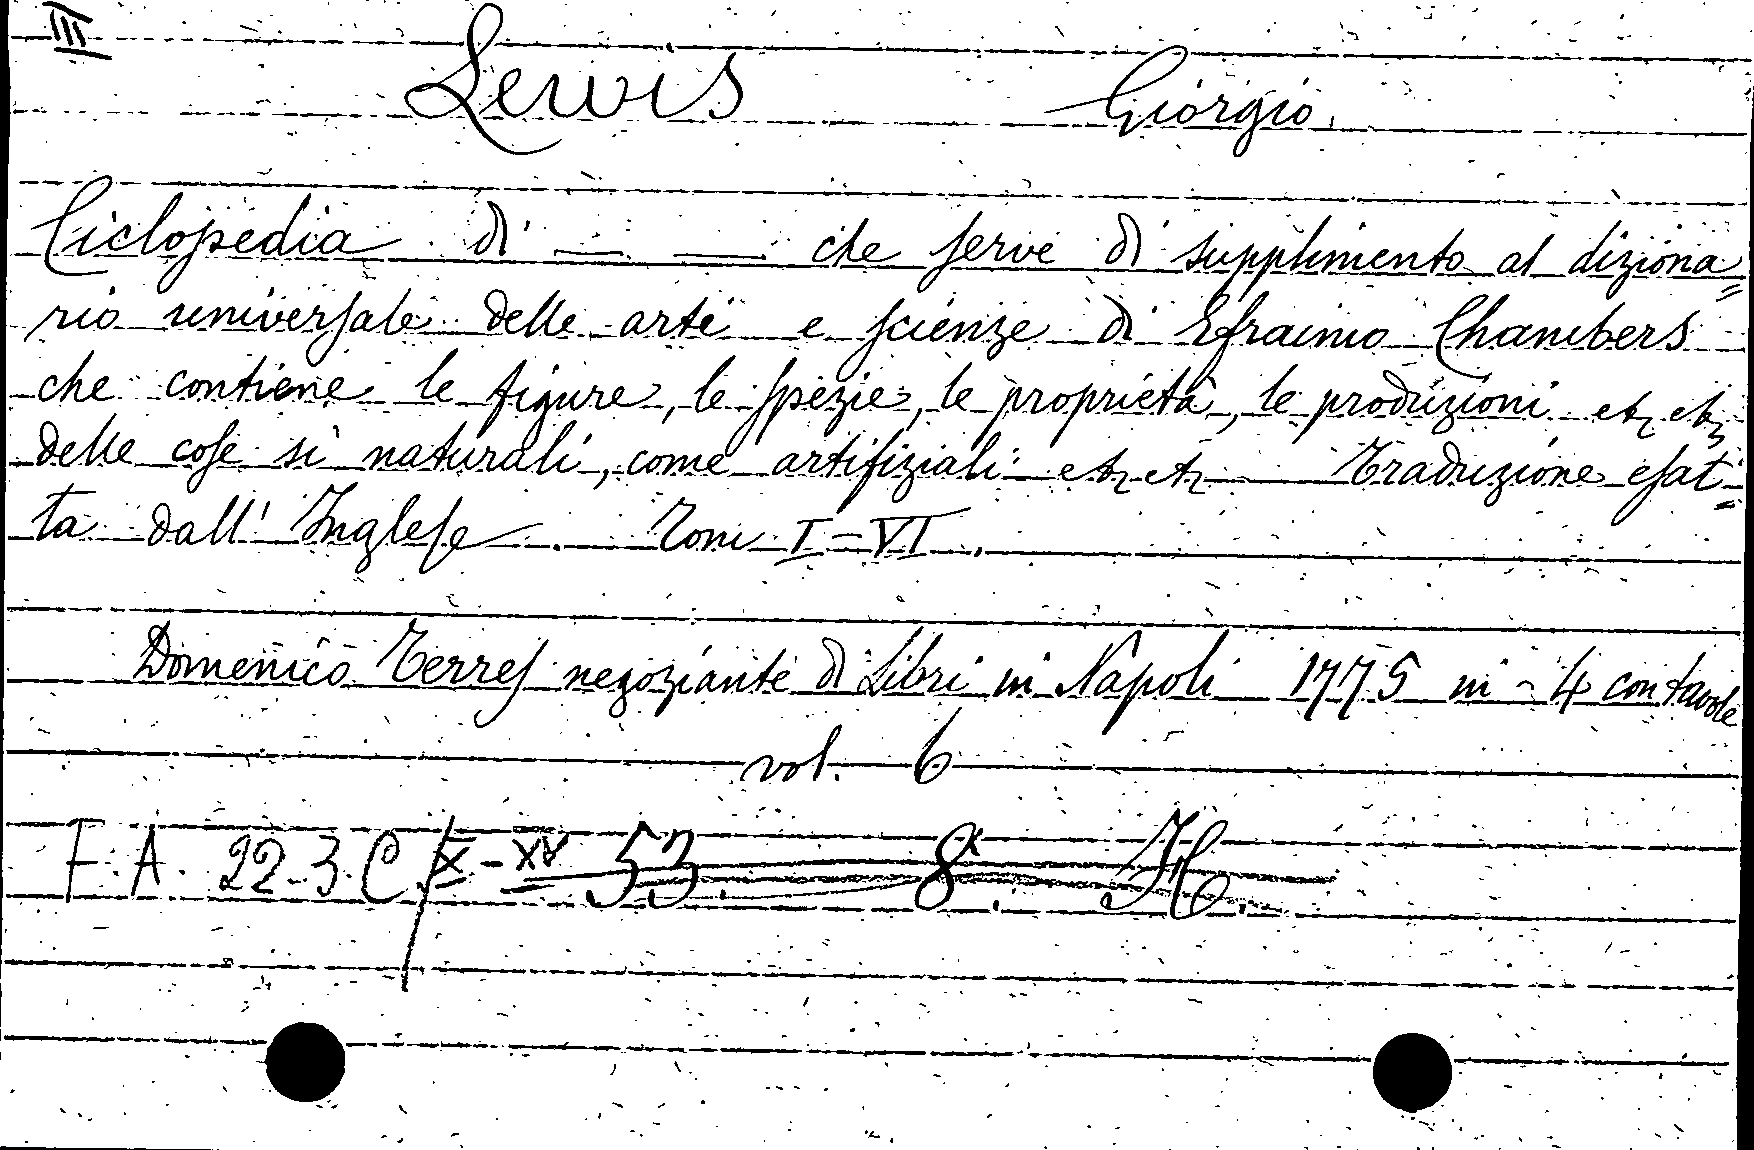 III
Lewis Giorgio.
Ciclopedia di — — che serve di supplimento al diziona=
rio universale delle arti e scienze di Efraimo Chambers
che contiene le figure, le spezie, le proprietà, le produzioni etc etc
delle cose sì naturali, come artifiziali etc etc — Traduzione esat=
ta dall' Inglese. Tomi I-VI.
Domenico Terres negoziante di Libri in Napoli 1775 in-4 con tavole
vol. 6
F. A. 22.3.C/X-XV 53. 8.